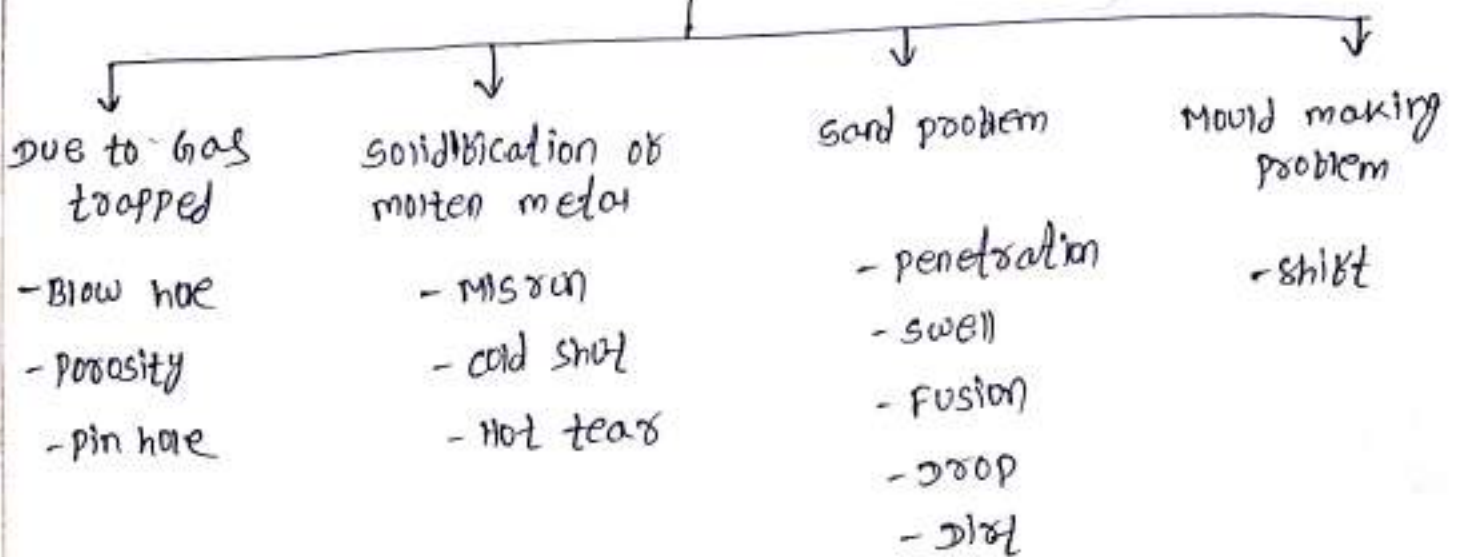 Due to Gas
trapped
- Blow hole
- Porosity
- Pin hole
Solidification of
molten metal
- Misrun
- cold shot
- Hot tear
Sand problem
- penetration
- swell
- Fusion
- Drop
- Dirt
Mould making
problem
- shift